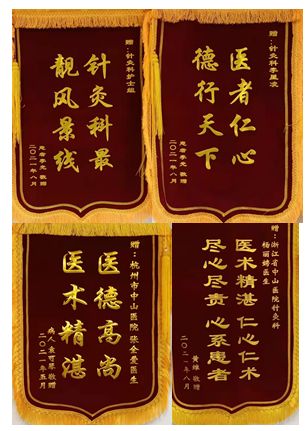 赠：针灸科护士组
针灸科最
靓风景线
患者李光 敬赠
二〇二一年八月
赠：针灸科李星凌
医者仁心
德行天下
患者李光 敬赠
二〇二一年八月
赠：杭州市中山医院 张全爱医生
医德高尚
医术精湛
病人袁可琴 敬赠
二〇二一年五月
赠：浙江省中山医院针灸科
杨丽娉医生
医术精湛 仁心仁术
尽心尽责 心系患者
黄维 敬赠
二〇二一年八月